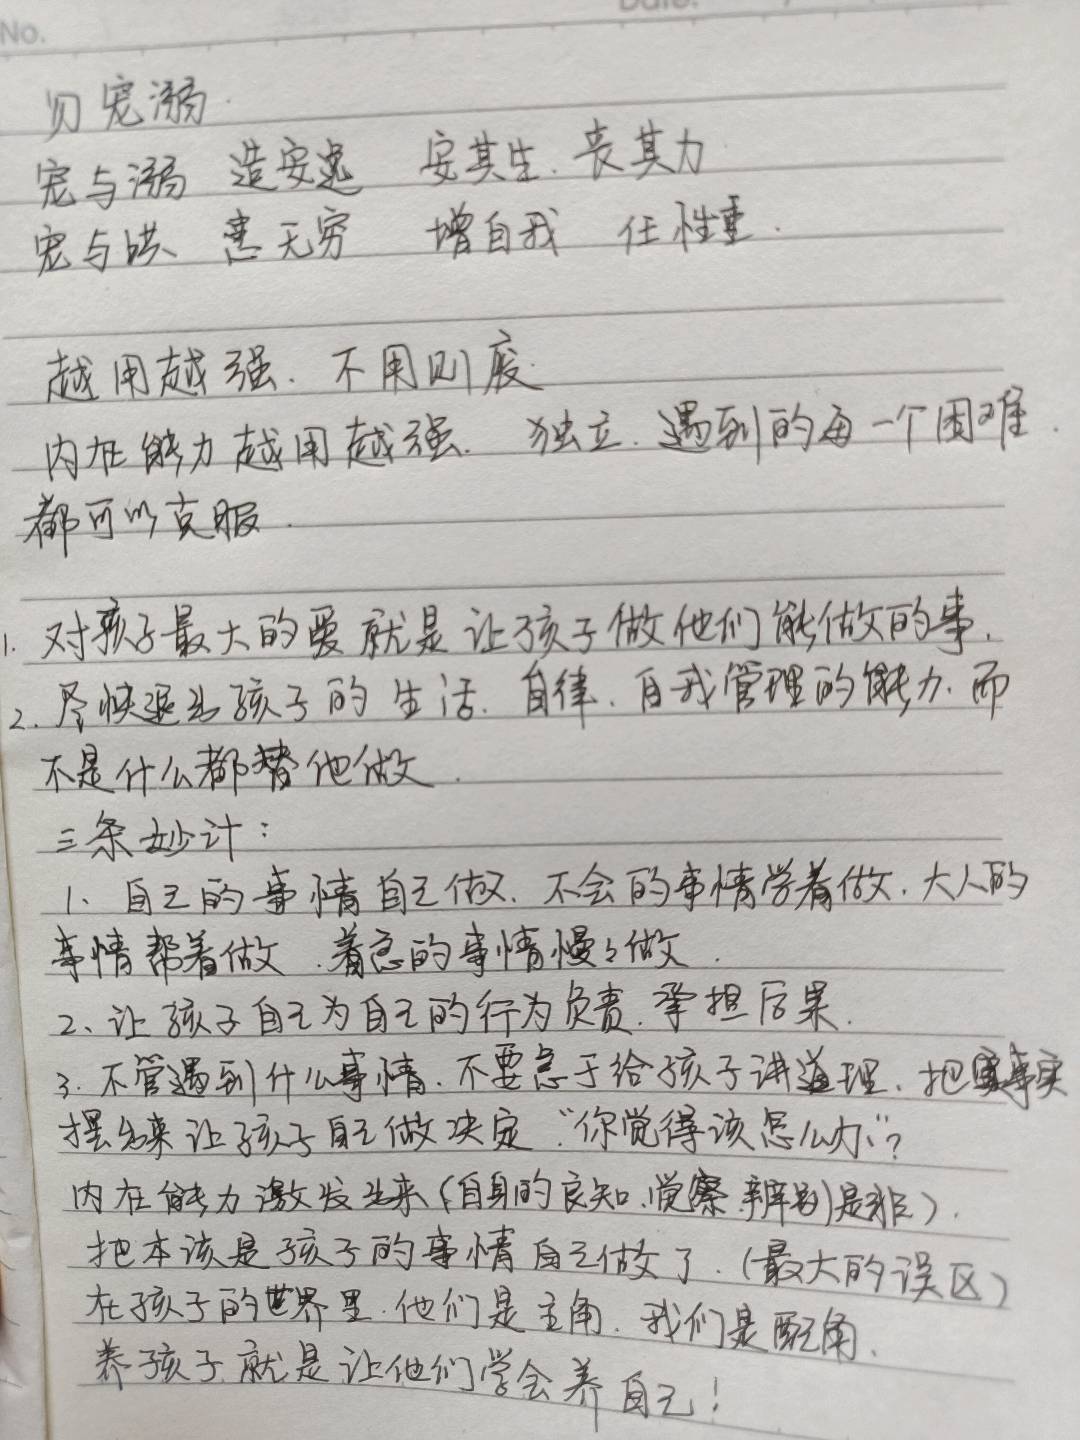 No.
Date.
勿宠溺.
宠与溺 造安逸 安其生.丧其力
宠与哄、患无穷 增自我 任性重.
越用越强.不用则废.
内在能力越用越强.独立.遇到的每一个困难.
都可以克服.
1.对孩子最大的爱就是让孩子做他们能做的事.
2.尽快退出孩子的生活.自律.自我管理的能力.而
不是什么都替他做.
三条妙计:
1、自己的事情自己做.不会的事情学着做.大人的
事情帮着做.着急的事情慢々做.
2、让孩子自己为自己的行为负责.承担后果.
3.不管遇到什么事情.不要急于给孩子讲道理.把事实
摆出来让孩子自己做决定“你觉得该怎么办”?
内在能力激发出来(自身的良知.觉察.辨别是非).
把本该是孩子的事情自己做了.(最大的误区)
在孩子的世界里.他们是主角.我们是配角.
养孩子就是让他们学会养自己!